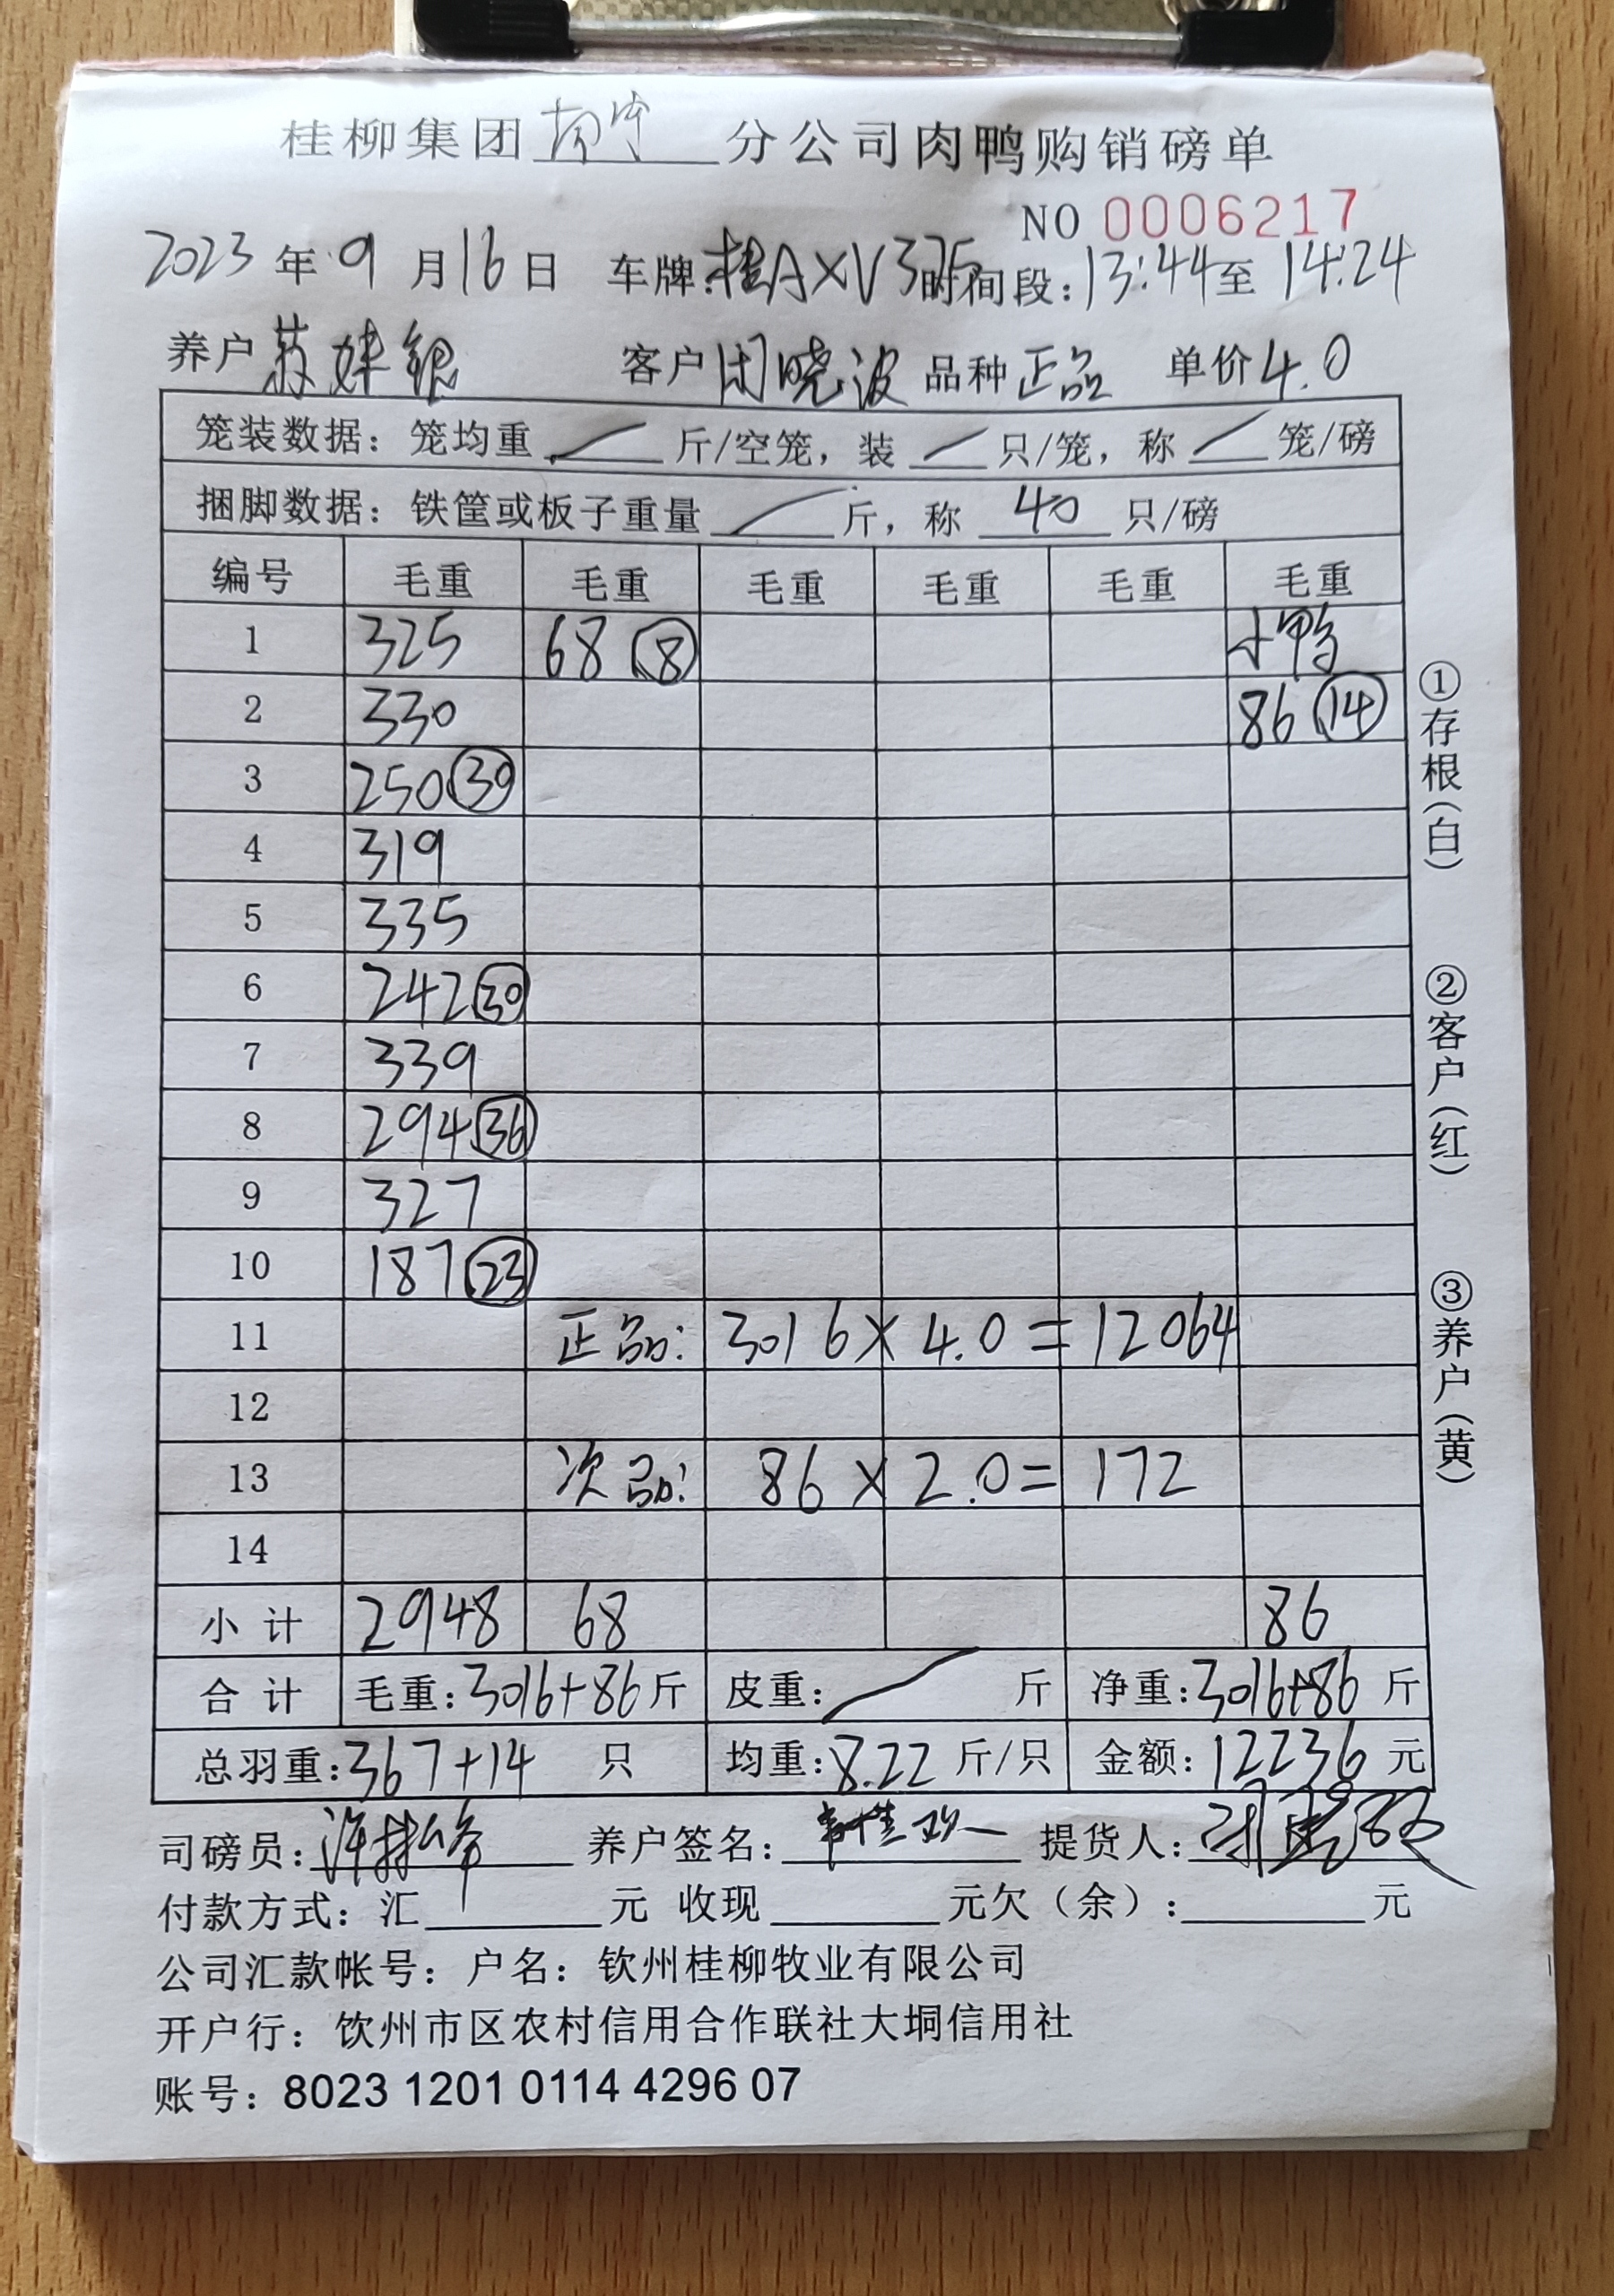 桂柳集团南宁分公司肉鸭购销磅单
NO 0006217
2023年9月16日 车牌:桂AXV375 时间段:13:44至14:24
养户 苏妹银 客户 闭晓波 品种 正品 单价 4.0
笼装数据: 笼均重 / 斤/空笼, 装 / 只/笼, 称 / 笼/磅
捆脚数据: 铁筐或板子重量 / 斤, 称 40 只/磅
编号 毛重 毛重 毛重 毛重 毛重 毛重
1 325 68 (8) 小鸭
2 330 86 (14)
3 250 (30)
4 319
5 335
6 242 (30)
7 339
8 294 (36)
9 327
10 187 (23)
11 正品: 3016 × 4.0 = 12064
12
13 次品: 86 × 2.0 = 172
14
小计 2948 68 86
合计 毛重:3016+86斤 皮重: / 斤 净重:3016+86斤
总羽重:367+14 只 均重:8.22斤/只 金额:12236元
司磅员: 养户签名: 提货人:
付款方式: 汇 元 收现 元欠(余): 元
公司汇款帐号: 户名: 钦州桂柳牧业有限公司
开户行: 饮州市区农村信用合作联社大垌信用社
账号: 8023 1201 0114 4296 07
①存根(白)
②客户(红)
③养户(黄)